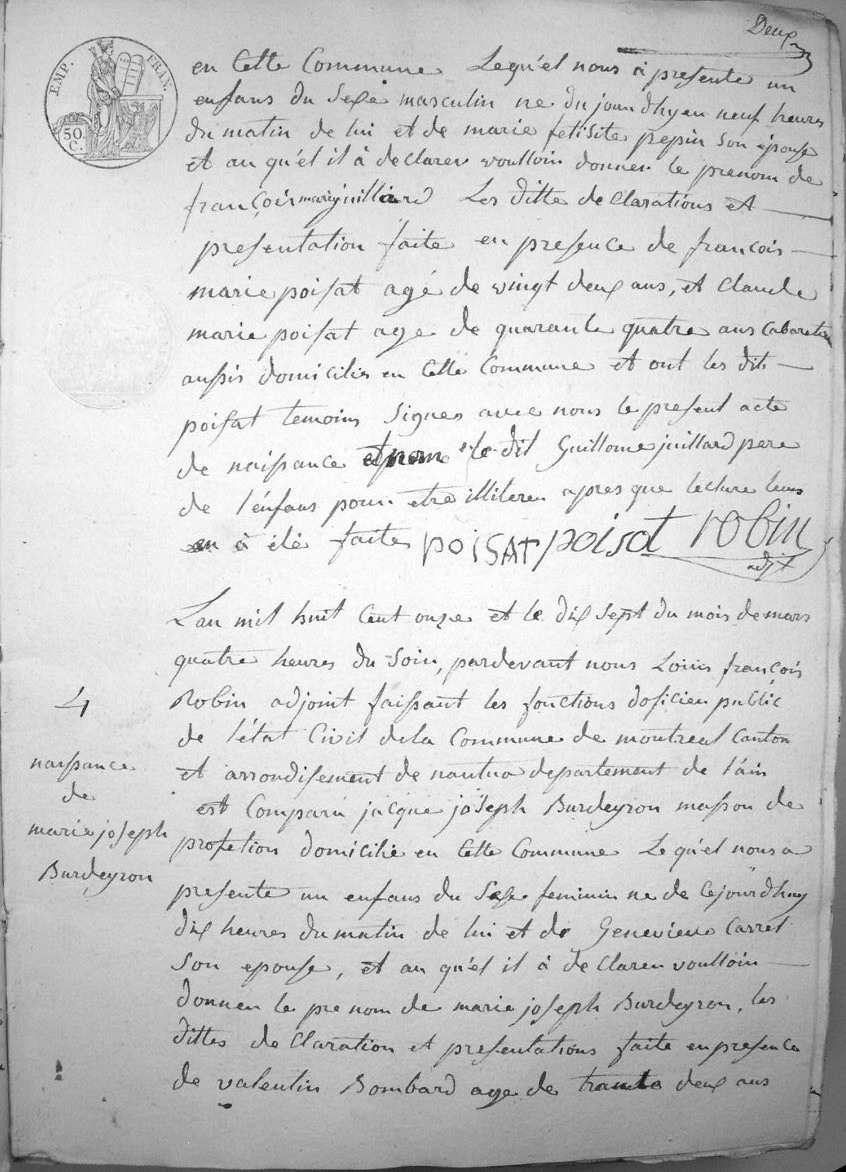 Deux
EMP. FRAN.
50
C.
en Cette Commune Lequ'el nous à presente un
enfans du Sexe masculin ne du jourdhyeu neuf heures
du matin de lui et de marie felisite pepin son épouse
et au qu'él il à declarer woulloir donner le prenom de
françois marie juillard Les ditte declarations et
presentation faite en presence de francois
marie poisat agé de wingt deux ans, et Claude
marie poisat age de quarante quatre ans Cabaretier
aussis domicilies en Cette Commune et ont les dits
poisat temoins Signes avec nous le present acte
de naissance et non le dit Guillome juillard pere
de l'énfans pour etre illiterer apres que lecture leurs
en à éte faite poiSAT poisat robin
adjt
Lan mil huit Cent onze et le dix sept du mois de mars
quatre heures du Soir, pardevant nous Louis françois
Robin adjoint faissant les fonctions doficier public
de l'état Civil dela Commune de montreal Canton
et arrondisement de nantua departement de l'ain
est Comparu jacque joseph Burdeyron masson de
profetion domicilie en Cette Commune Lequ'el nous a
presente un enfans du Sexe feminin ne de Cejourdhuy
dix heures du matin de lui et de Genevieve Carrel
Son epouse, et au qu'él il à declarer voulloir
donner le prenom de marie joseph Burdeyron, les
dittes declaration et presentations faite en presence
de valentin Bombard age de trante deux ans
4
naissance
de
marie joseph
Burdeyron